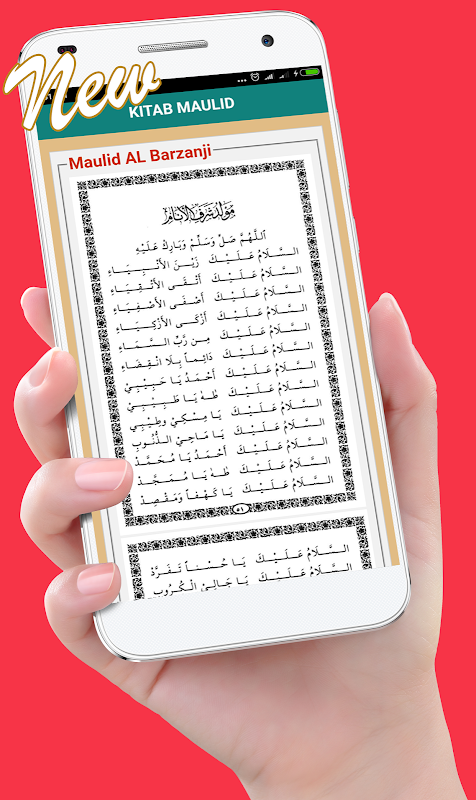 New
KITAB MAULID
Maulid AL Barzanji
مَوْلِدُ شَرَفِ الْأَنَامِ
اَللّٰهُمَّ صَلِّ وَسَلِّمْ وَبَارِكْ عَلَيْهِ
اَلسَّلَامُ عَلَيْكَ زَيْنَ الْأَنْبِيَاءِ
اَلسَّلَامُ عَلَيْكَ أَتْقَى الْأَتْقِيَاءِ
اَلسَّلَامُ عَلَيْكَ أَصْفَى الْأَصْفِيَاءِ
اَلسَّلَامُ عَلَيْكَ أَزْكَى الْأَزْكِيَاءِ
اَلسَّلَامُ عَلَيْكَ مِنْ رَبِّ السَّمَاءِ
اَلسَّلَامُ عَلَيْكَ دَائِمًا بِلَا انْقِضَاءِ
اَلسَّلَامُ عَلَيْكَ أَحْمَدُ يَا حَبِيْبِيْ
اَلسَّلَامُ عَلَيْكَ طٰهٰ يَا طَبِيْبِيْ
اَلسَّلَامُ عَلَيْكَ يَا مِسْكِيْ وَطِيْبِيْ
اَلسَّلَامُ عَلَيْكَ يَا مَاحِيَ الذُّنُوْبِ
اَلسَّلَامُ عَلَيْكَ أَحْمَدُ يَا مُحَمَّدْ
اَلسَّلَامُ عَلَيْكَ طٰهٰ يَا مُمَجَّدْ
اَلسَّلَامُ عَلَيْكَ يَا كَهْفًا وَمَقْصِدْ
٥١
اَلسَّلَامُ عَلَيْكَ يَا حُسْنًا تَفَرَّدْ
اَلسَّلَامُ عَلَيْكَ يَا جَالِيَ الْكُرُوْبِ